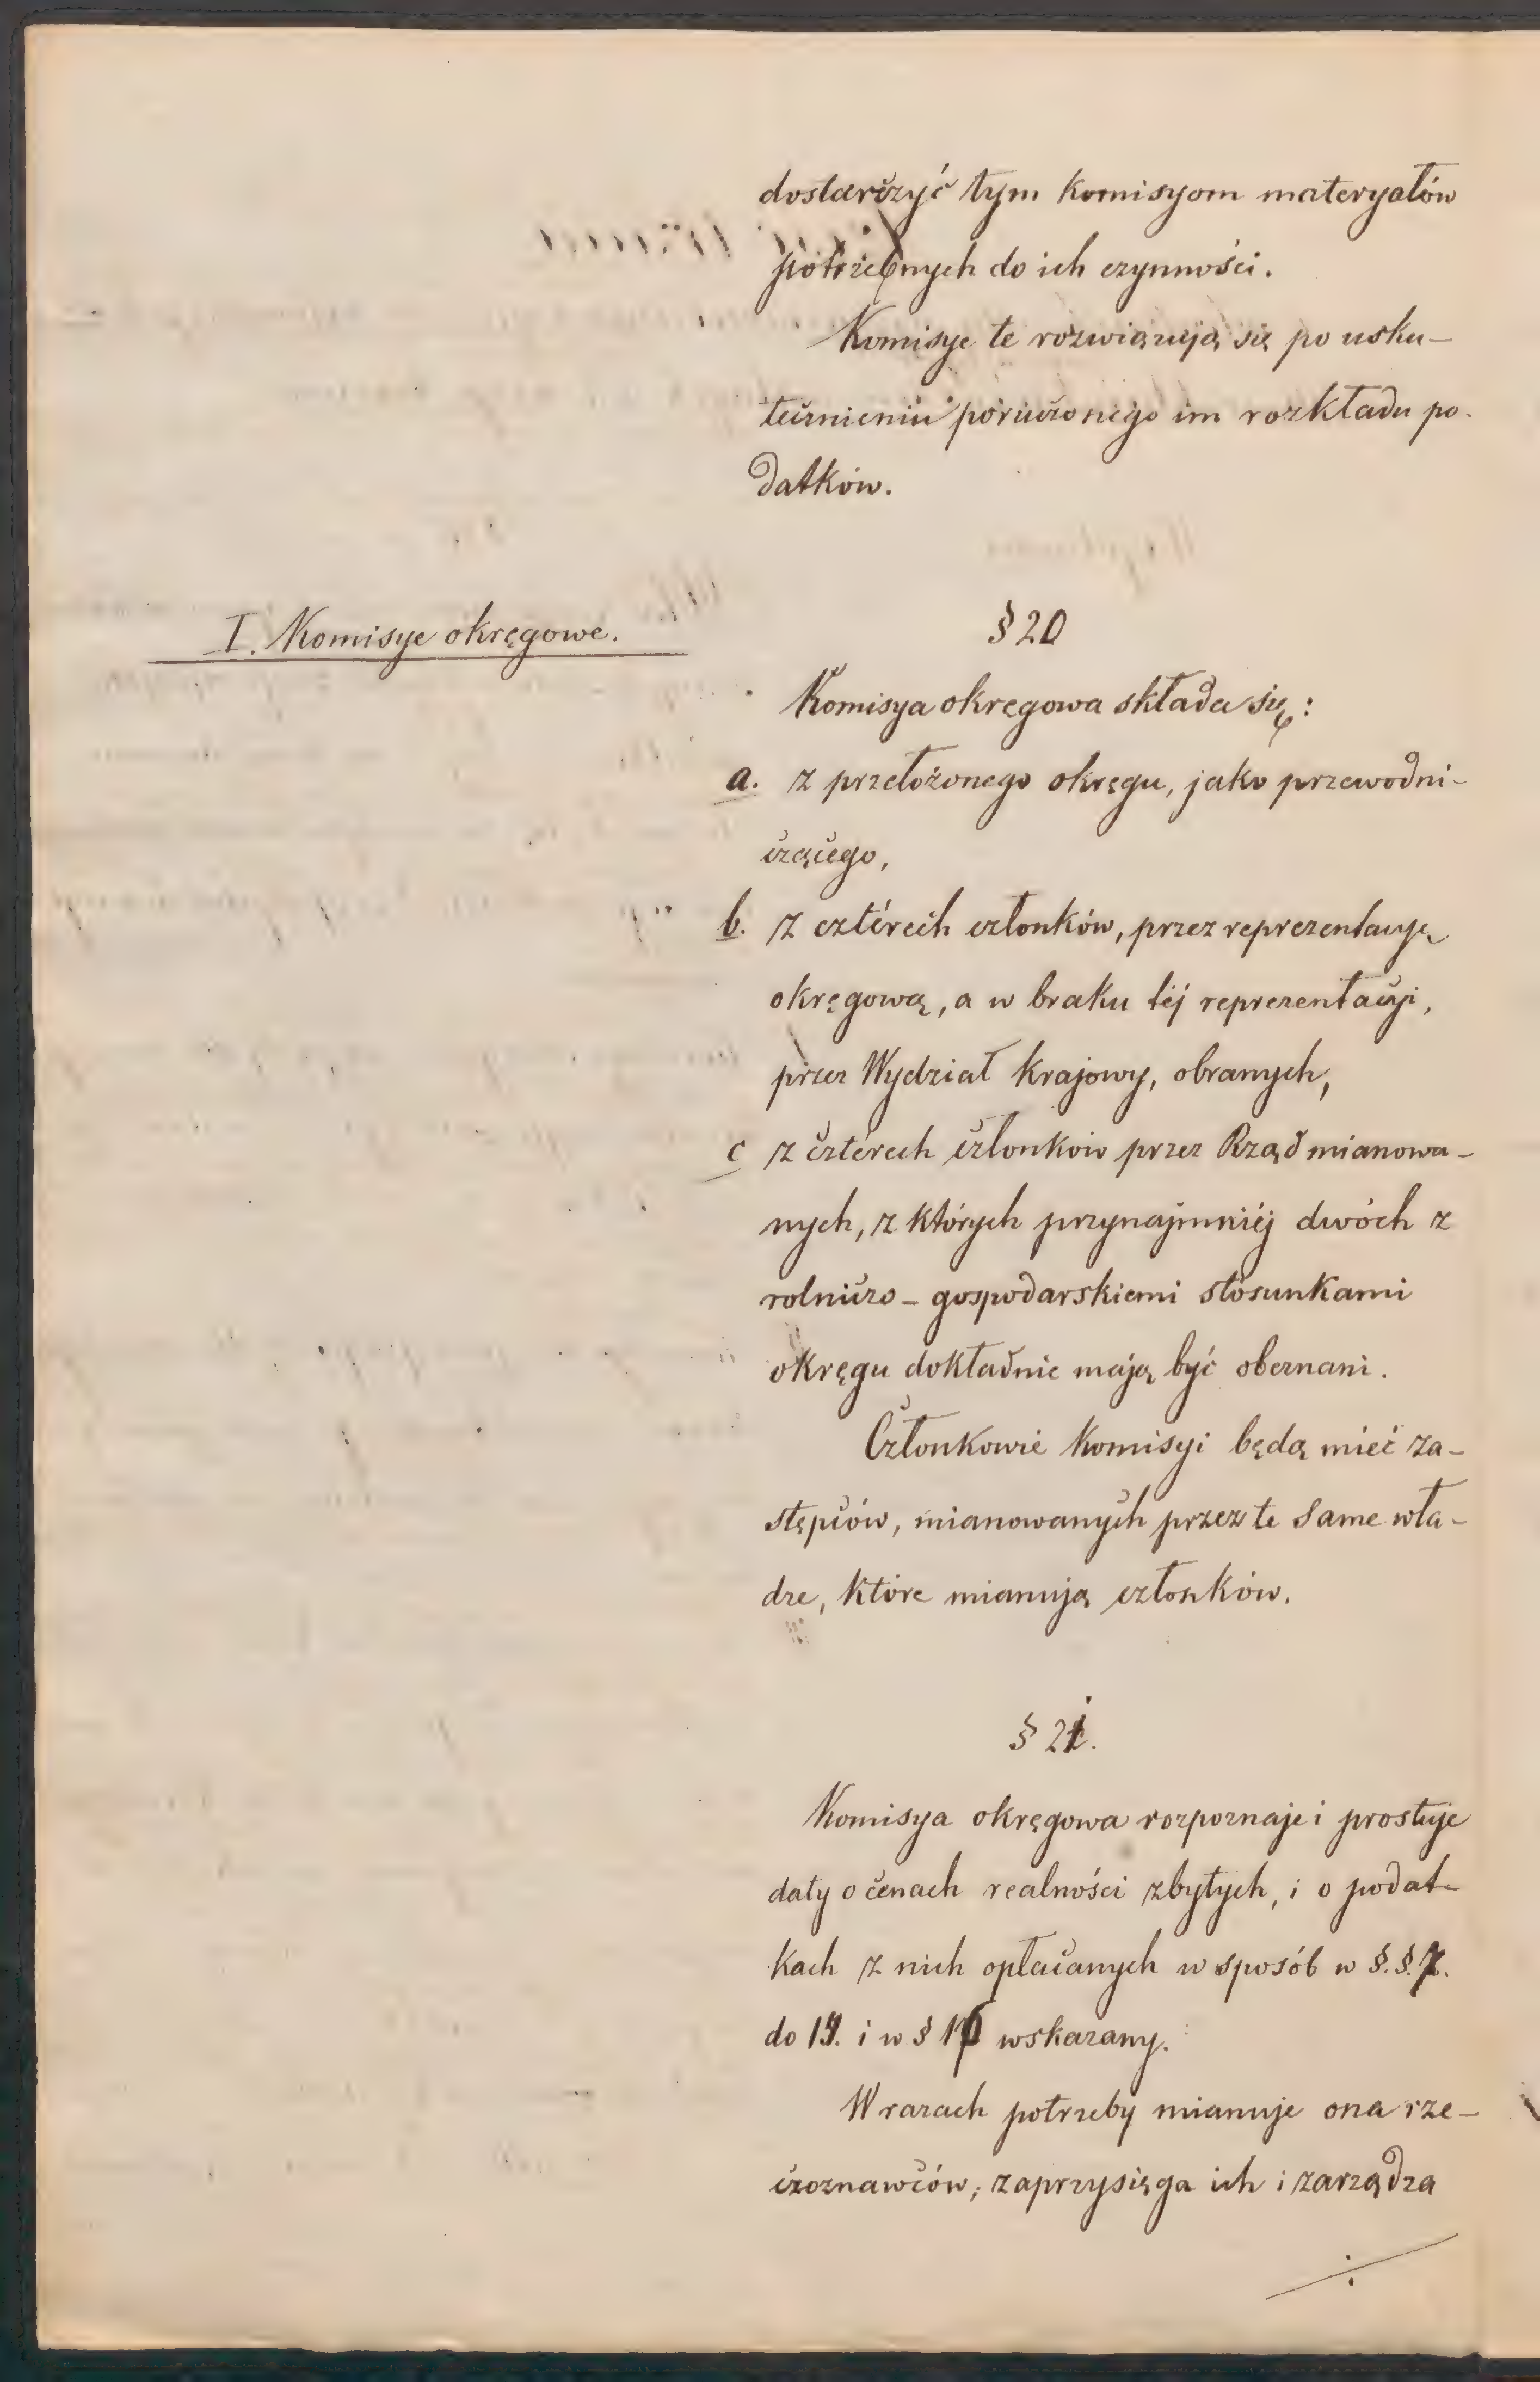 dostarczyć tym Komisyom materyałów
potrzebnych do ich czynności.
Komisye te rozwiązują się po usku-
tecznieniu poruczonego im rozkładu po-
datków.
I. Komisye okręgowe.
§ 20
Komisya okręgowa składa się:
a. z przełożonego okręgu, jako przewodni-
czącego,
b. z cztérech członków, przez reprezentacyę
okręgową, a w braku téj reprezentacyi,
przez Wydział Krajowy, obranych,
c z czterech członków przez Rząd mianowa-
nych, z których przynajmniéj dwóch z
rolniczo-gospodarskiemi stosunkami
okręgu dokładnie mają być obeznani.
Członkowie Komisyi będą mieć za-
stępców, mianowanych przez te same wła-
dze, które mianują członków.
§ 21.
Komisya okręgowa rozpoznaje i prostuje
daty o cenach realności zbytych, i o podat-
kach z nich opłacanych w sposób w §.§. 7.
do 14. i w § 16 wskazany.
W razach potrzeby mianuje ona rze-
czoznawców, zaprzysięga ich i zarządza